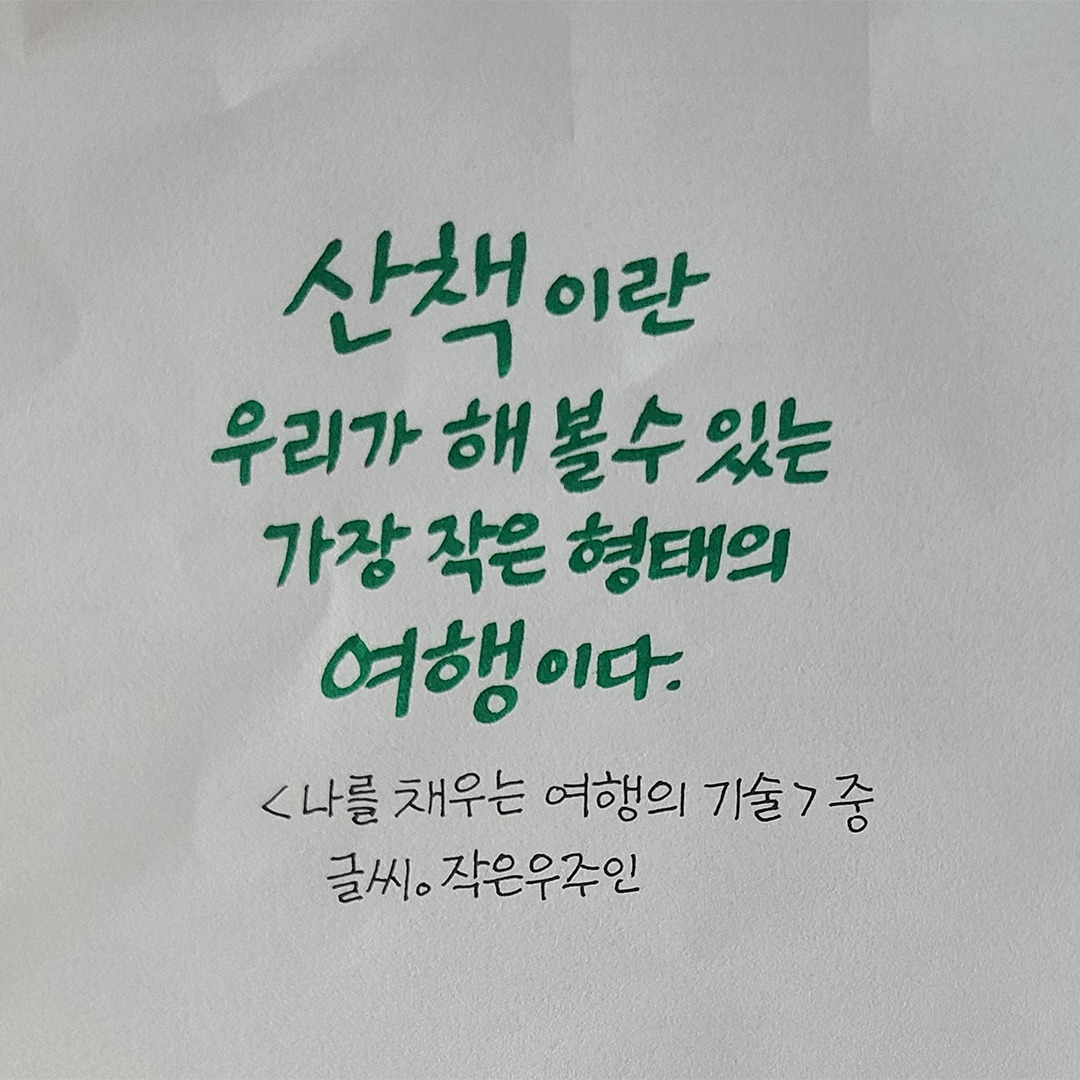 산책이란
우리가 해 볼 수 있는
가장 작은 형태의
여행이다.
<나를 채우는 여행의 기술> 중
글씨。작은우주인